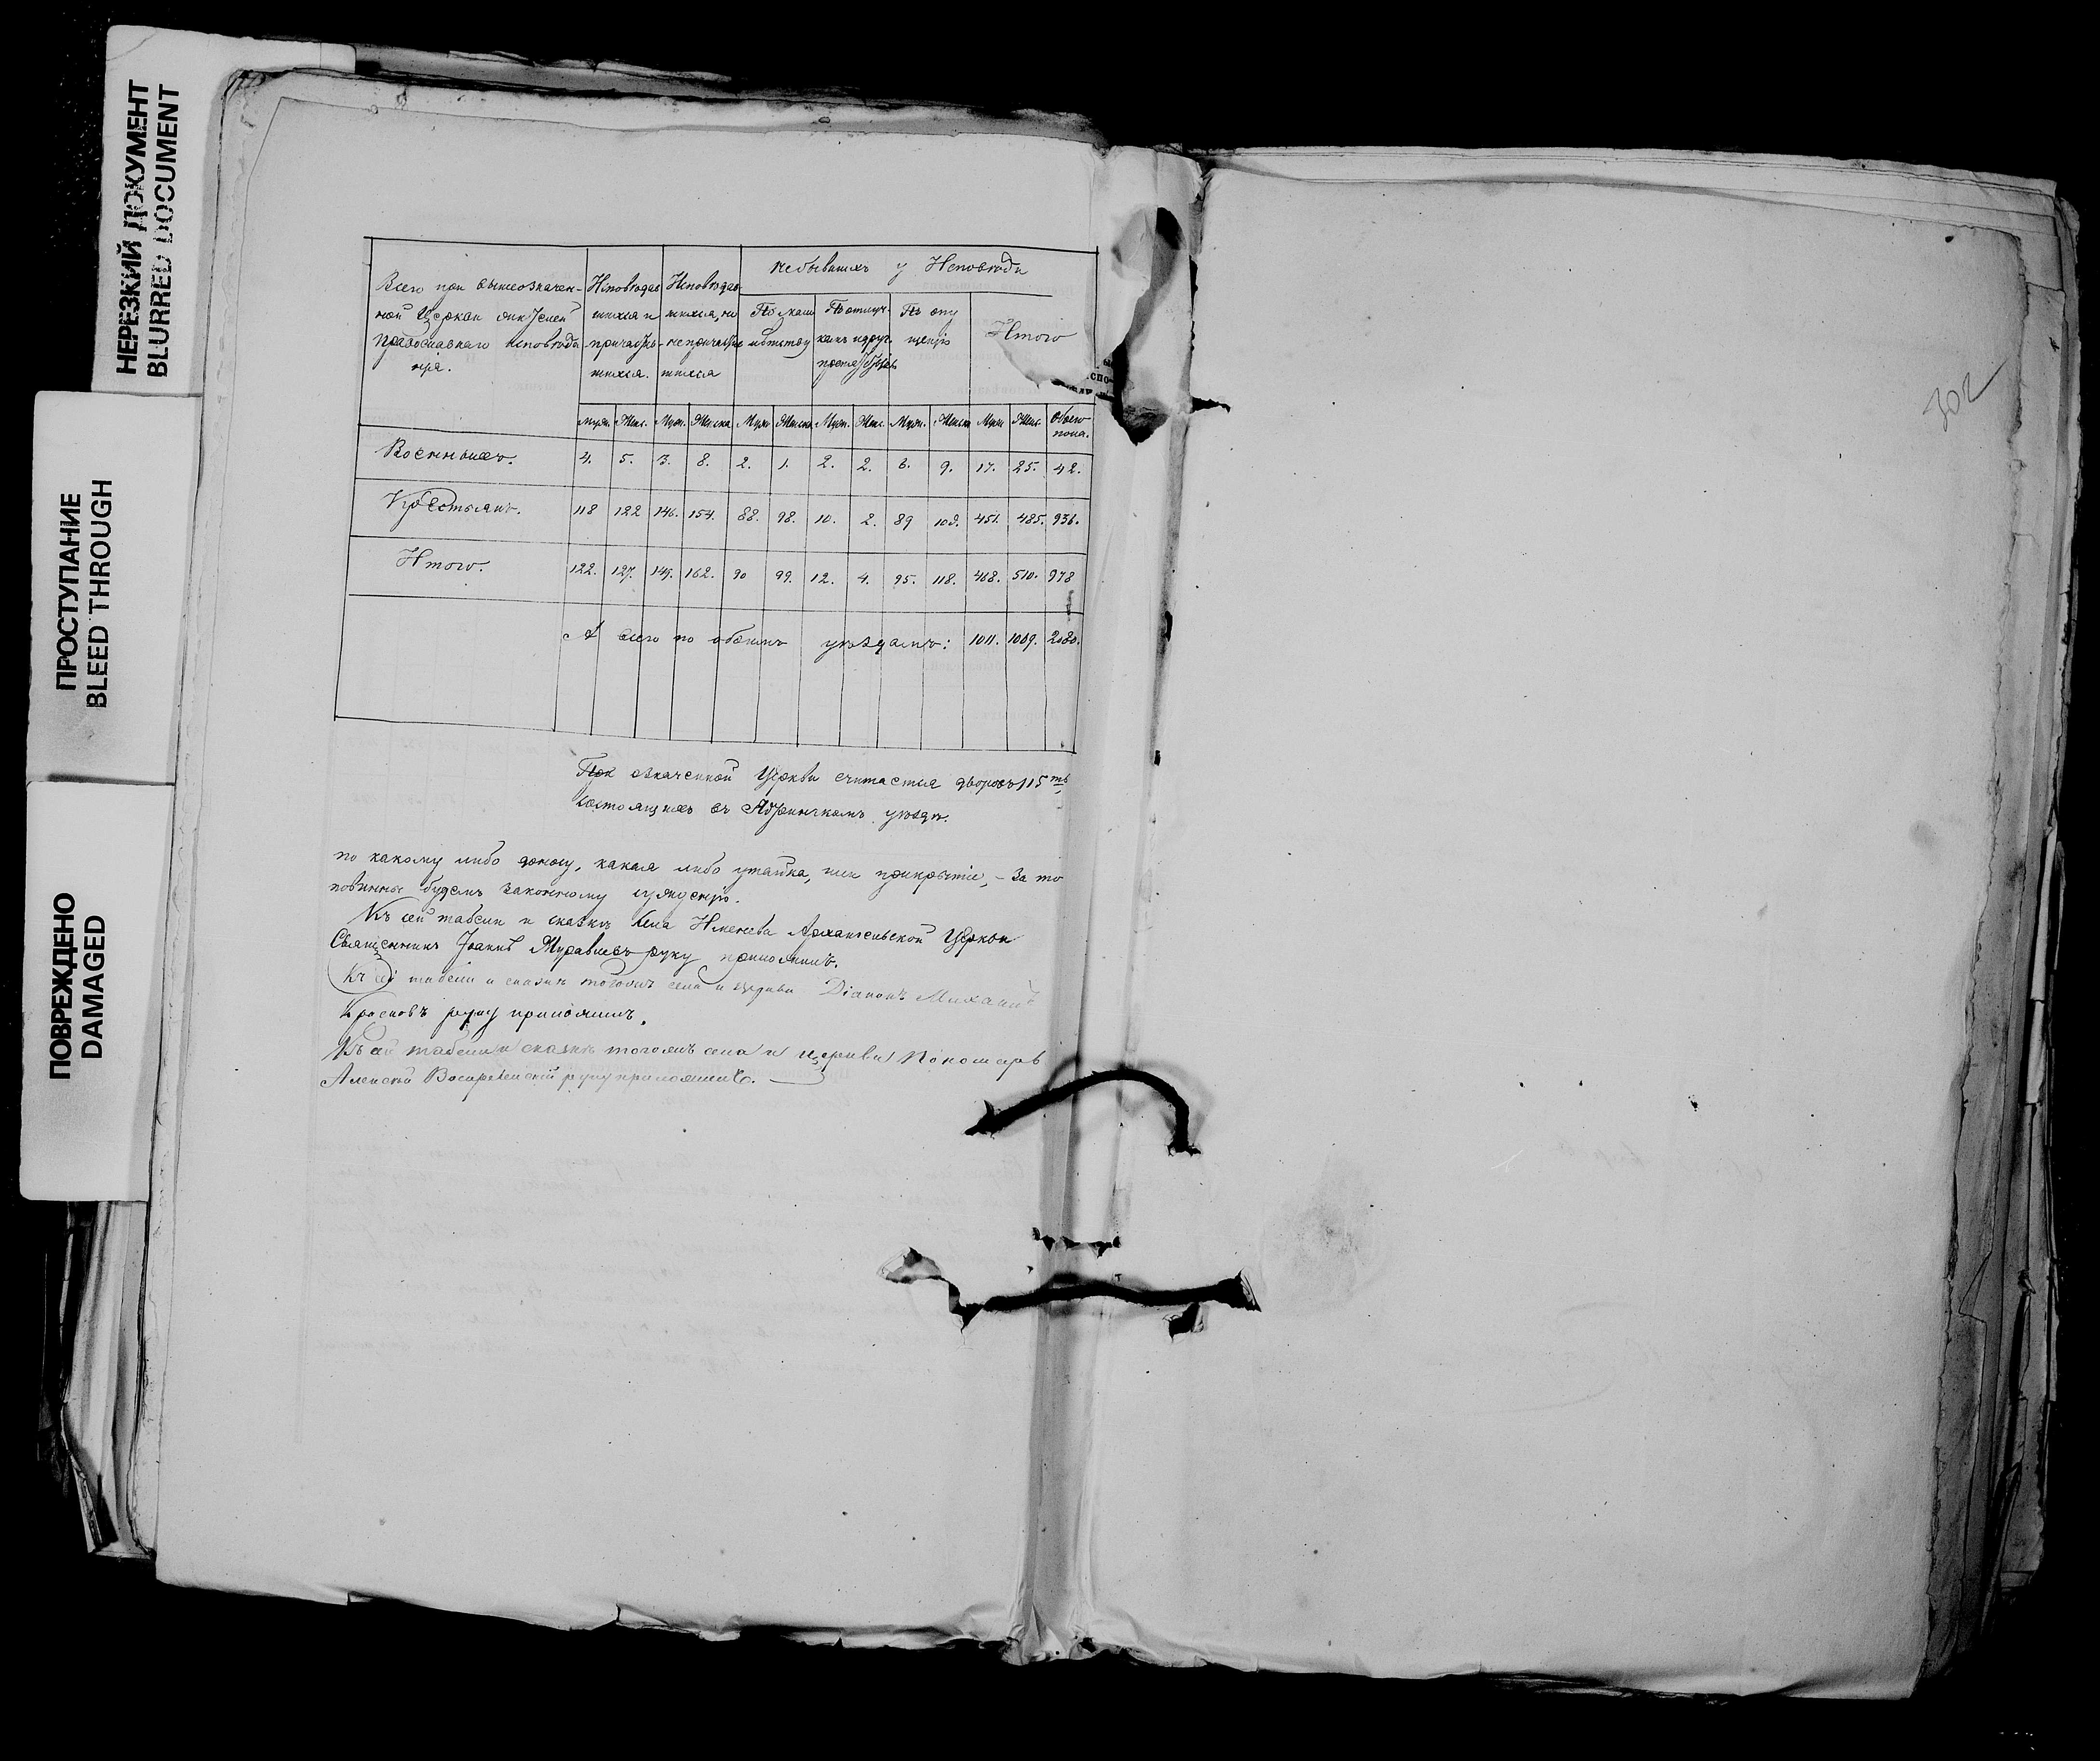 НЕРЕЗКИЙ ДОКУМЕНТ
BLURRED DOCUMENT
ПРОСТУПАНИЕ
BLEED THROUGH
ПОВРЕЖДЕНО
DAMAGED
302
Всего при вышеозначен-
ной Церкви
православнаго исповѣда-
нія.
Исповѣдав-
шихся и
причастив-
шихся.
Исповѣдав-
шихся, но
непричастив-
шихся
небывшихъ у Исповѣди
По мало
лѣтству
По отлуч-
камъ и друг.
По опу
щенію
Итого
испо-
Муж. Жен. Муж. Женск. Муж. Женск. Муж. Жен. Муж. Женск. Муж. Жен. Обоего пола.
Военныхъ. 4. 5. 3. 8. 2. 1. 2. 2. 6. 9. 17. 25. 42.
Крестьянъ. 118 122 146. 154. 88. 98. 10. 2. 89 109. 451. 485. 936.
Итого. 122. 127. 149. 162. 90 99. 12. 4. 95. 118. 468. 510. 978
А всего по обоимъ уѣздамъ: 1011. 1069. 2080.
При означенной Церкви считается дворовъ 115ть,
состоящихъ въ Ядринскомъ уѣздѣ.
по какому либо доносу, какая либо утайка, или прикрытіе, – За то
повинны будемъ законному сужденію.
Къ сей табели и сказкѣ села Именева Архангельской Церкви
Священникъ Іоаннъ Муравьевъ руку приложилъ.
Къ сей табели и сказкѣ тогожъ села и церкви Діаконъ Михаилъ
руку приложилъ.
Къ сей табели и сказкѣ тогожъ села и церкви Пономарь
Алексѣй Воскресенскій руку приложилъ.